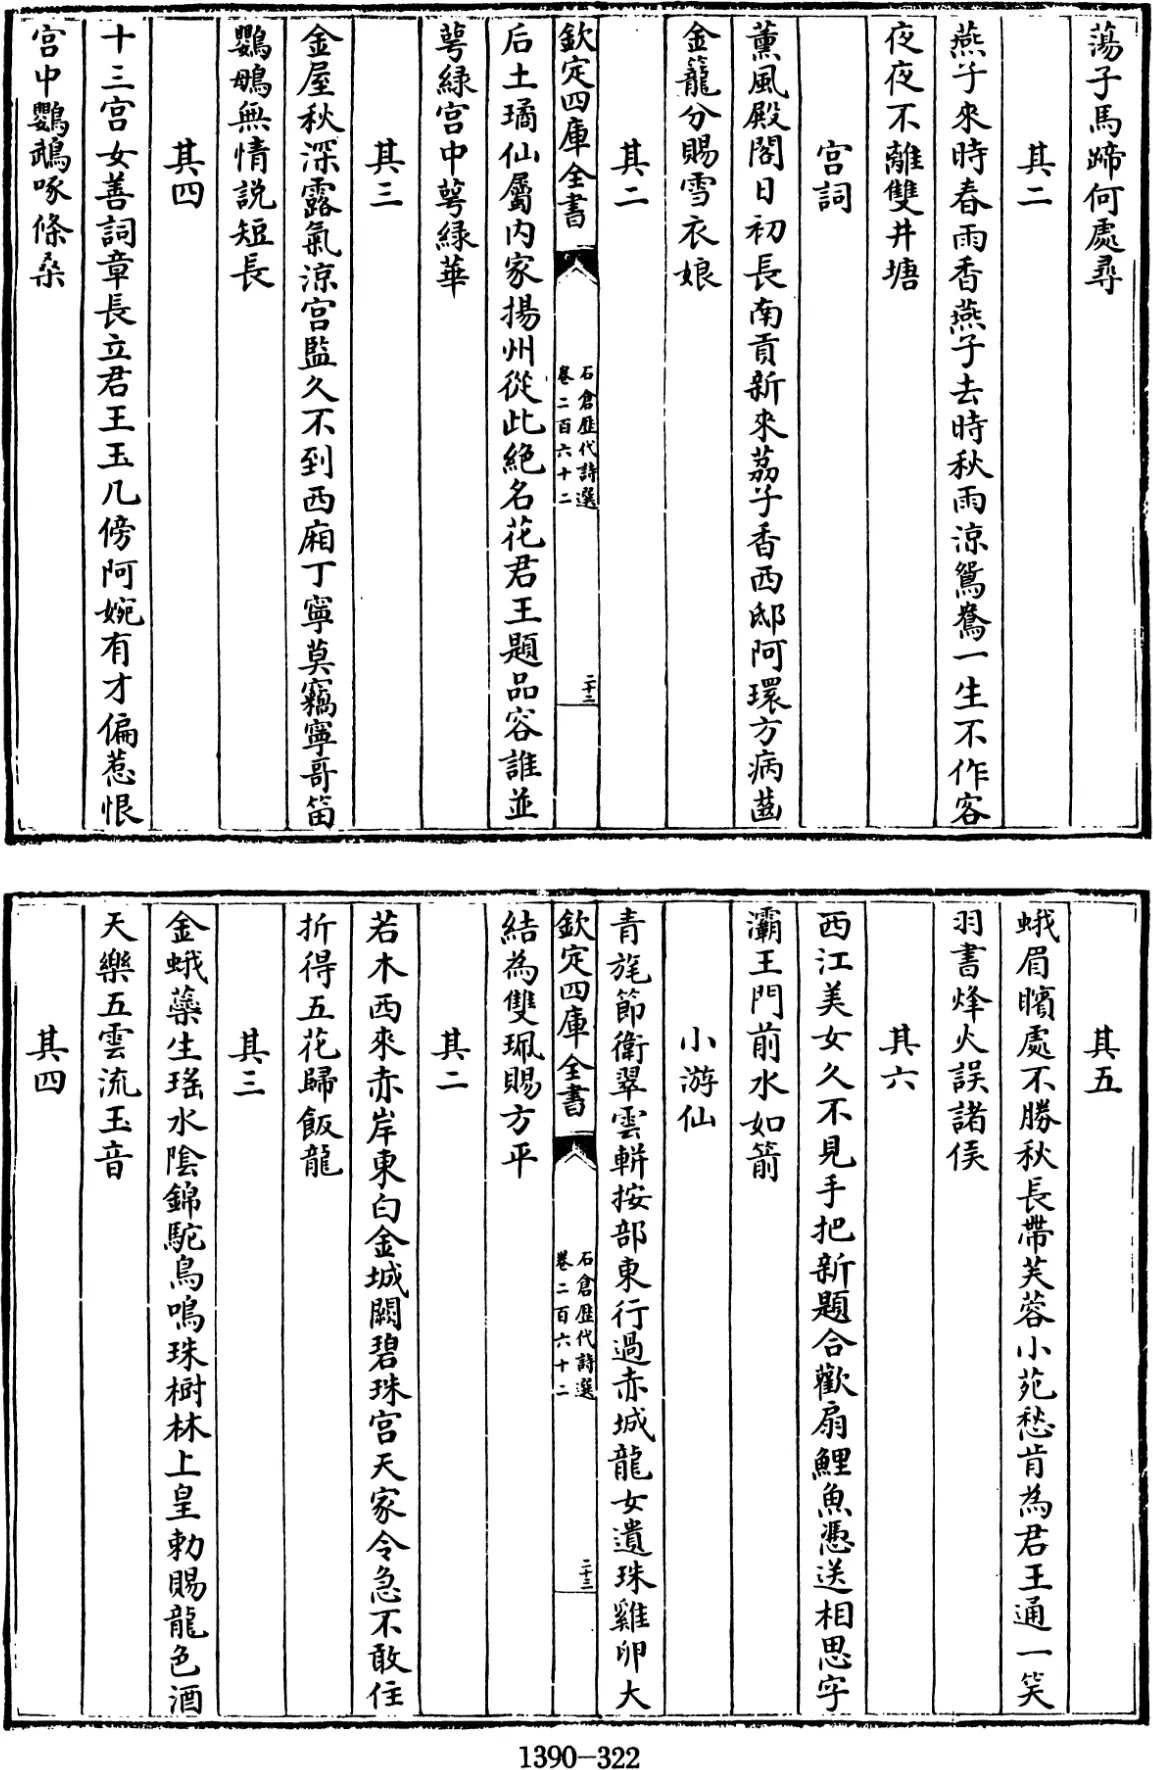 蕩子馬蹄何處尋
其二
燕子來時春雨香燕子去時秋雨涼鴛鴦一生不作客
夜夜不離雙井塘
宫詞
薫風殿閣日初長南貢新來荔子香西邸阿環方病齒
金籠分賜雪衣娘
其二
欽定四庫全書
石倉歷代詩選
卷二百六十二
二十三
后土璚仙屬内家揚州從此絶名花君王題品容誰並
萼緑宫中萼緑華
其三
金屋秋深露氣涼宫監久不到西廂丁寧莫竊寧哥笛
鸚鵡無情説短長
其四
十三宫女善詞章長立君王玉几傍阿婉有才偏惹恨
宫中鸚鵡啄條桑
其五
蛾眉矉處不勝秋長帶芙蓉小苑愁肯為君王通一笑
羽書烽火誤諸侯
其六
西江美女久不見手把新題合歡扇鯉魚憑送相思字
灞王門前水如箭
小游仙
青旄節衛翠雲軿按部東行過赤城龍女遺珠雞卵大
欽定四庫全書
石倉歷代詩選
卷二百六十二
二十三
結為雙珮賜方平
其二
若木西來赤岸東白金城闕碧珠宫天家令急不敢住
折得五花歸飯龍
其三
金蛾藥生瑶水陰錦駝鳥鳴珠樹林上皇勅賜龍色酒
天樂五雲流玉音
其四
1390-322